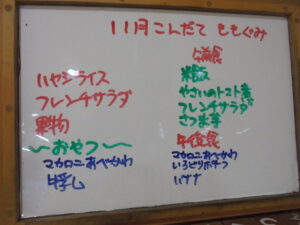 11月こんだて ももぐみ
ハヤシライス
フレンチサラダ
果物
〜おやつ〜
マカロニあべかわ
牛乳
米飯
やさいのトマト煮
フレンチサラダ
さつま芋
午後食
マカロニあべかわ
いろどりポテフ
バナナ